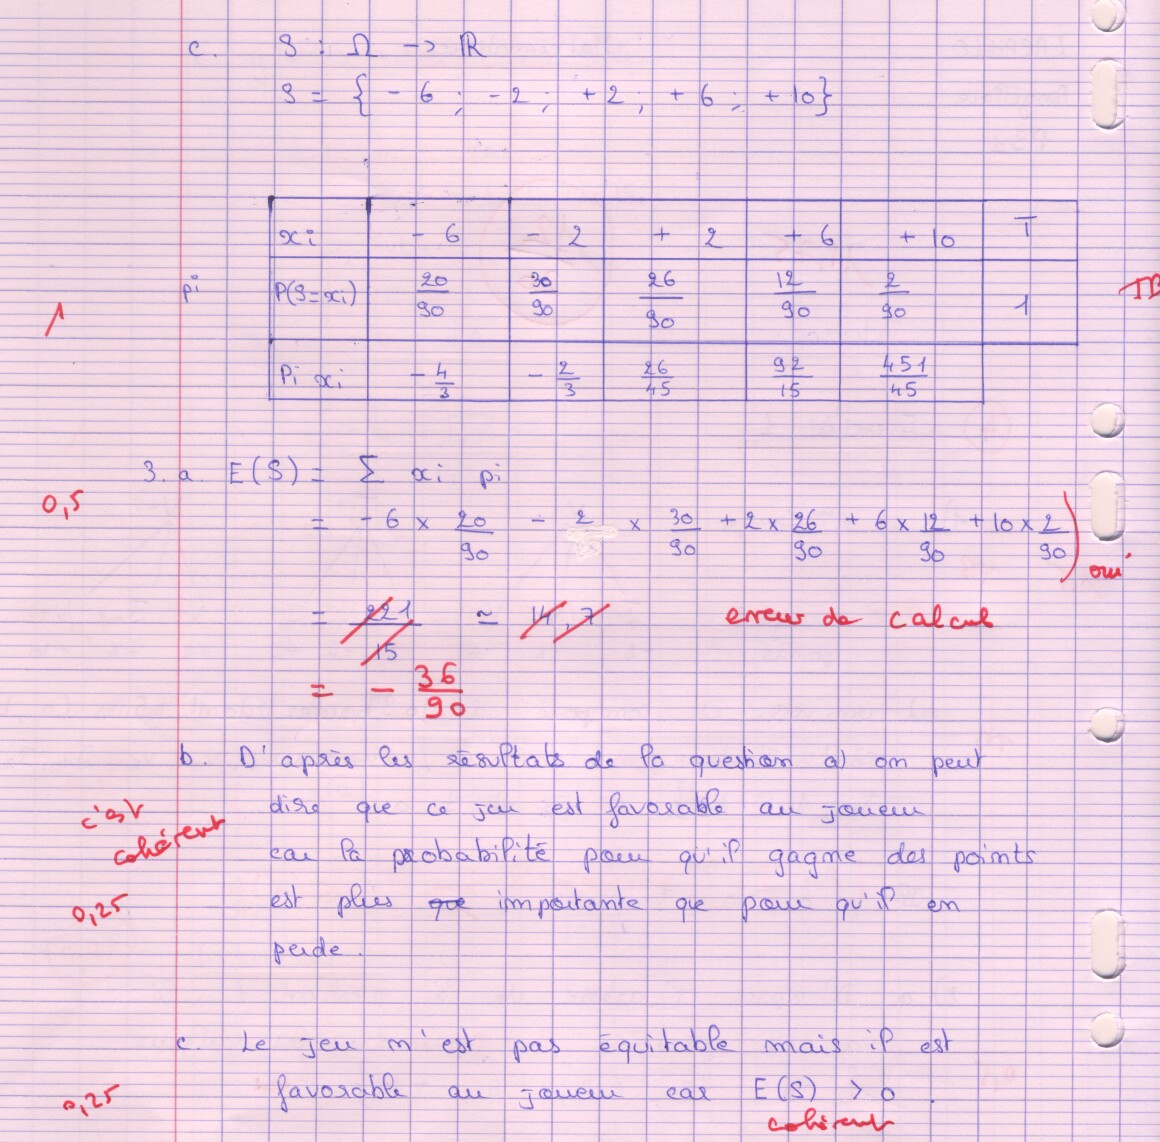 c. S : Ω → ℝ
S = { - 6 ; - 2 ; + 2 ; + 6 ; + 10}
xi - 6 - 2 + 2 + 6 + 10 T
pi P(S=xi) 20/90 30/90 26/90 12/90 2/90 1 TB
1
Pi xi - 4/3 - 2/3 26/45 92/15 451/45
3. a. E(S) = Σ xi pi
0,5
= - 6 × 20/90 - 2 × 30/90 + 2 × 26/90 + 6 × 12/90 + 10 × 2/90 ) oui
= 221/15 ≃ 14,7 erreur de calcul
= - 36/90
b. D'après les résultats de la question a) on peut
dire que ce jeu est favorable au joueur
c'est cohérent
car la probabilité pour qu'il gagne des points
0,25
est plus que importante que pour qu'il en
perde.
c. Le jeu n'est pas équitable mais il est
0,25
favorable au joueur car E(S) > 0.
cohérent